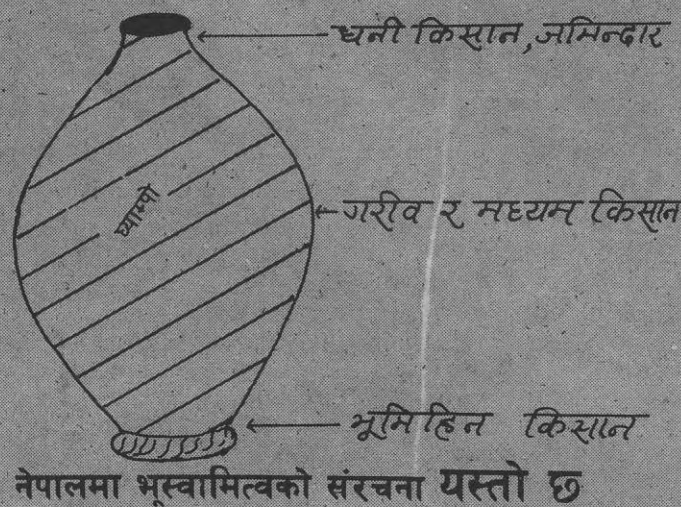 धनी किसान, जमिन्दार
घ्याम्पो
गरीव र मध्यम किसान
भूमिहिन किसान
नेपालमा भूस्वामित्वको संरचना यस्तो छ